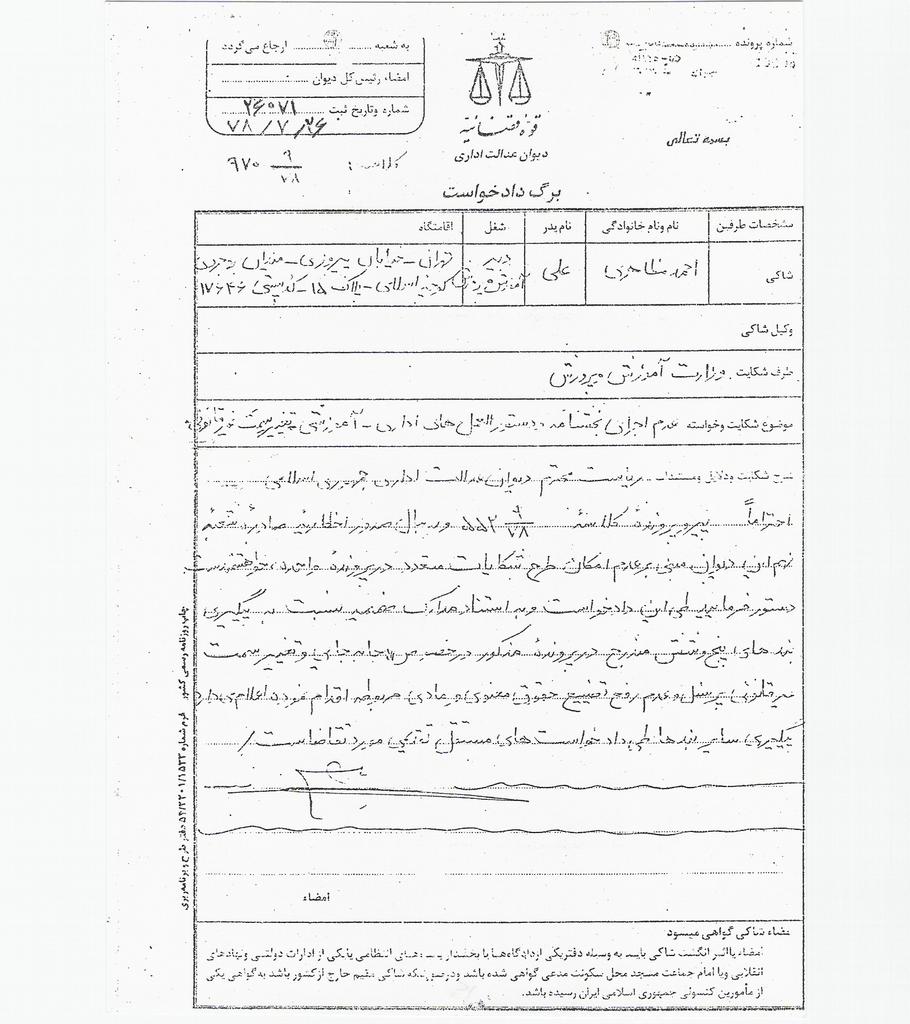 شماره پرونده
به شعبه ارجاع می گردد
امضاء رئیس کل دیوان
شماره وتاریخ ثبت ۲۶۰۷۱
۷۸/۷/۲۶
قوه قضائیه
دیوان عدالت اداری
بسمه تعالی
کلاسه : ۹/۷۸ ۶۷۰
برگ دادخواست
مشخصات طرفین نام ونام خانوادگی نام پدر شغل اقامتگاه
شاکی احمد مظاهری علی دبیر آموزش و پرورش تهران - خیابان پیروزی -
پلاک ۱۵ - کدپستی ۱۷۶۴۶
وکیل شاکی
طرف شکایت وزارت آموزش و پرورش
موضوع شکایت وخواسته عدم اجرای بخشنامه و دستورالعمل های اداری - آموزشی و تغییر سمت غیرقانونی
شرح شکایت ودلایل ومستندات - ریاست محترم دیوان عدالت اداری جمهوری اسلامی
احتراماً پیرو پرونده کلاسه ۹/۷۸ ۵۵۲ و بدنبال صدور اخطاریه صادره شعبه
نهم این دیوان مبنی بر عدم امکان طرح شکایات متعدد در پرونده واحد، خواهشمندست
دستور فرمایید طی این دادخواست و به استناد مدارک ضمیمه نسبت به پیگیری
بندهای پنج و شش مندرج در پرونده مذکور در خصوص جابه جایی و تغییر سمت
غیرقانونی پرسنل و عدم تضییع حقوق معنوی و مادی مربوطه اقدام فوری اعلام می دارد
پیگیری سایر بندها طی دادخواست های مستقل تقدیمی مورد تقاضاست /
امضاء
امضاء شاکی گواهی میشود
امضاء یا اثر انگشت شاکی باید به وسیله دفتر یکی از دادگاه‌ها یا بخشداری انتظامی یا یکی از ادارات دولتی ونهادهای
انقلابی ویا امام جماعت مسجد محل سکونت مدعی گواهی شده باشد ودرصورتیکه شاکی مقیم خارج ازکشور باشد به گواهی یکی
از مأمورین کنسولی جمهوری اسلامی ایران رسیده باشد.
چاپ روزنامه رسمی کشور فرم شماره ۵۲/۲۲۰۱/۱۵۳۲ دفتر طرح و برنامه ریزی